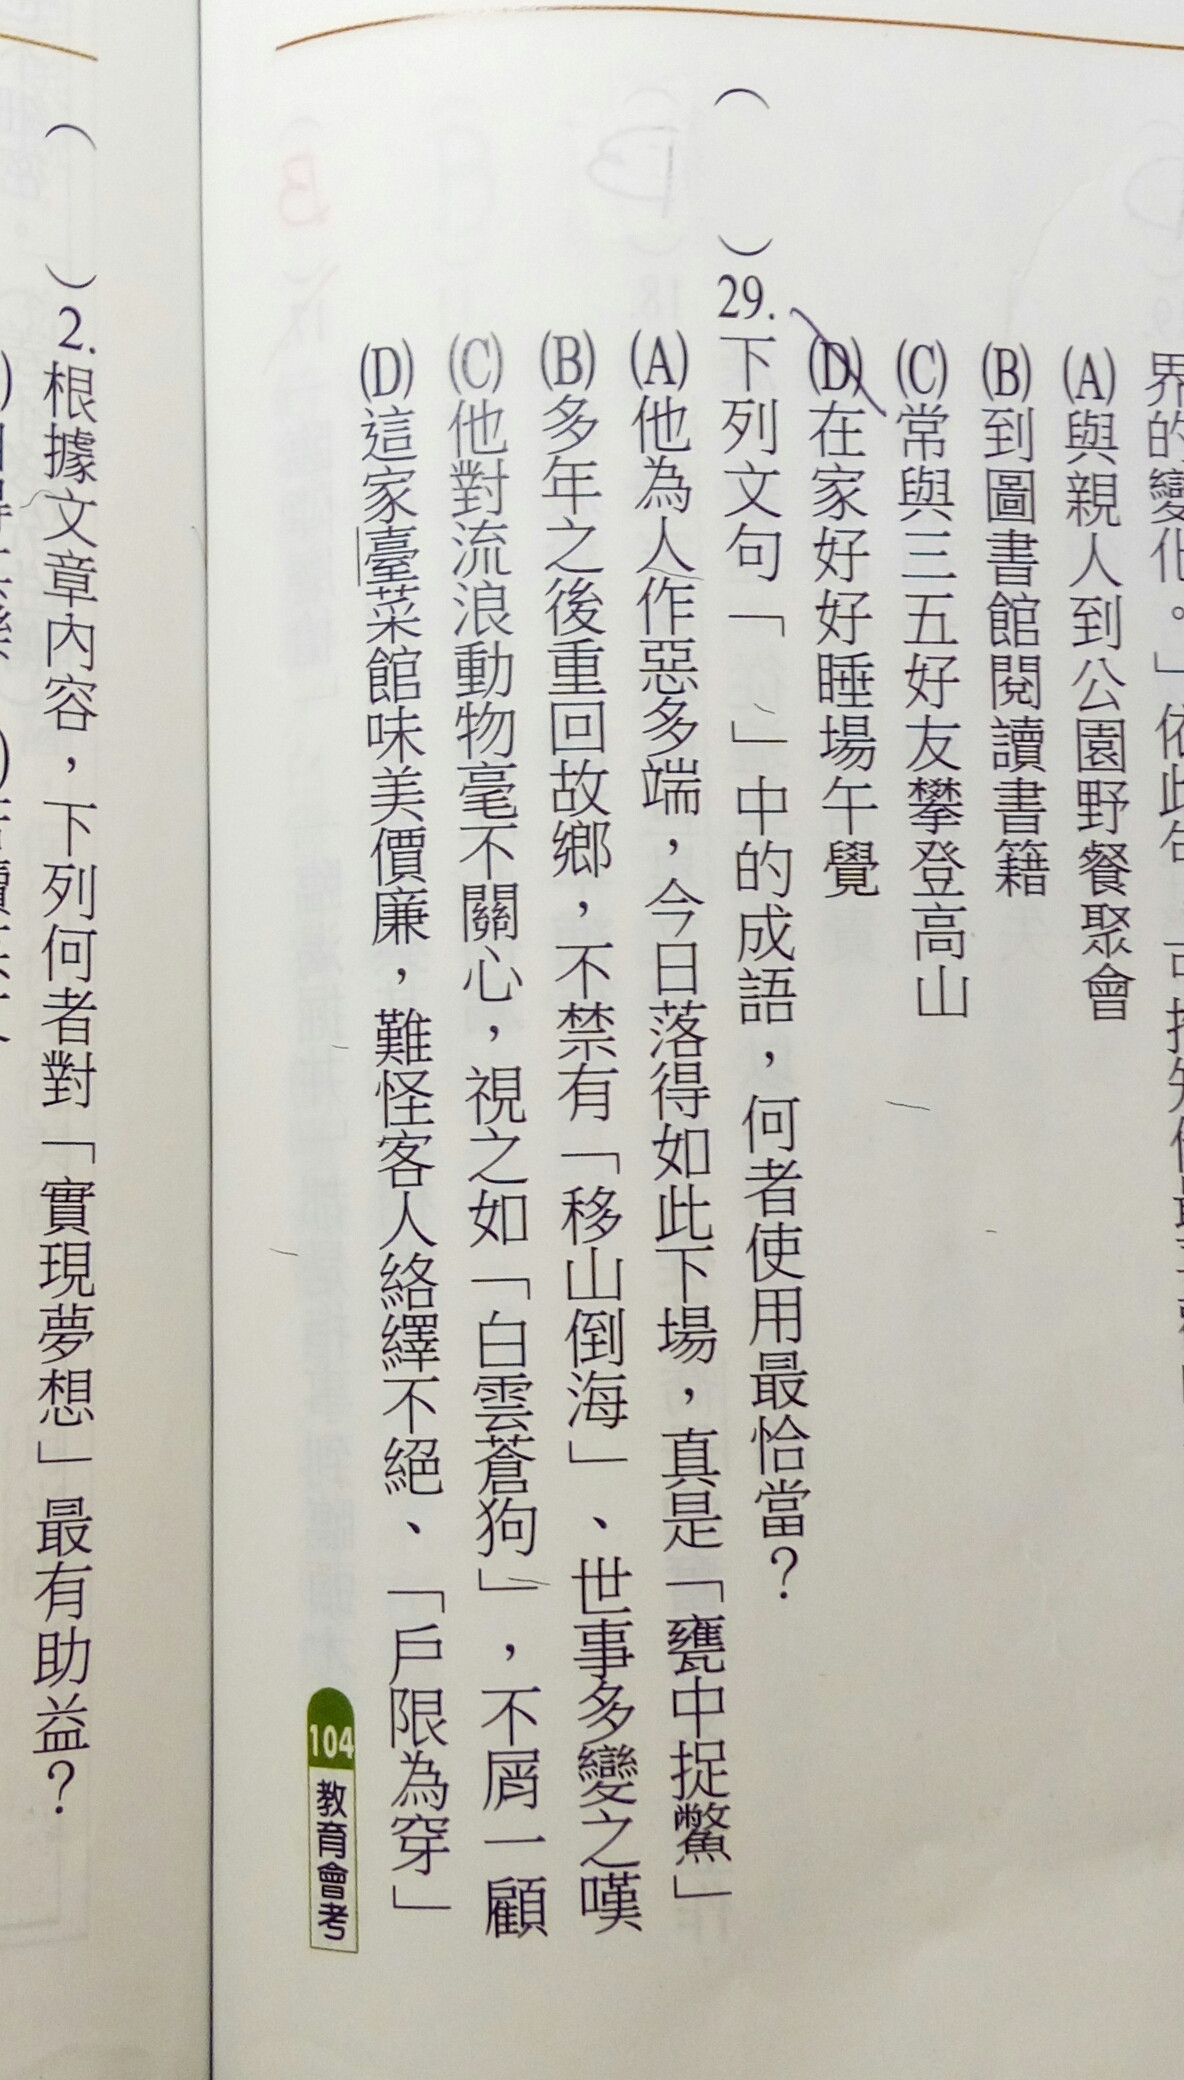 (A)與親人到公園野餐聚會
(B)到圖書館閱讀書籍
(C)常與三五好友攀登高山
(D)在家好好睡場午覺
( )29.下列文句「 」中的成語，何者使用最恰當？
(A)他為人作惡多端，今日落得如此下場，真是「甕中捉鱉」
(B)多年之後重回故鄉，不禁有「移山倒海」、世事多變之嘆
(C)他對流浪動物毫不關心，視之如「白雲蒼狗」，不屑一顧
(D)這家臺菜館味美價廉，難怪客人絡繹不絕、「戶限為穿」
104 教育會考
( )2.根據文章內容，下列何者對「實現夢想」最有助益？